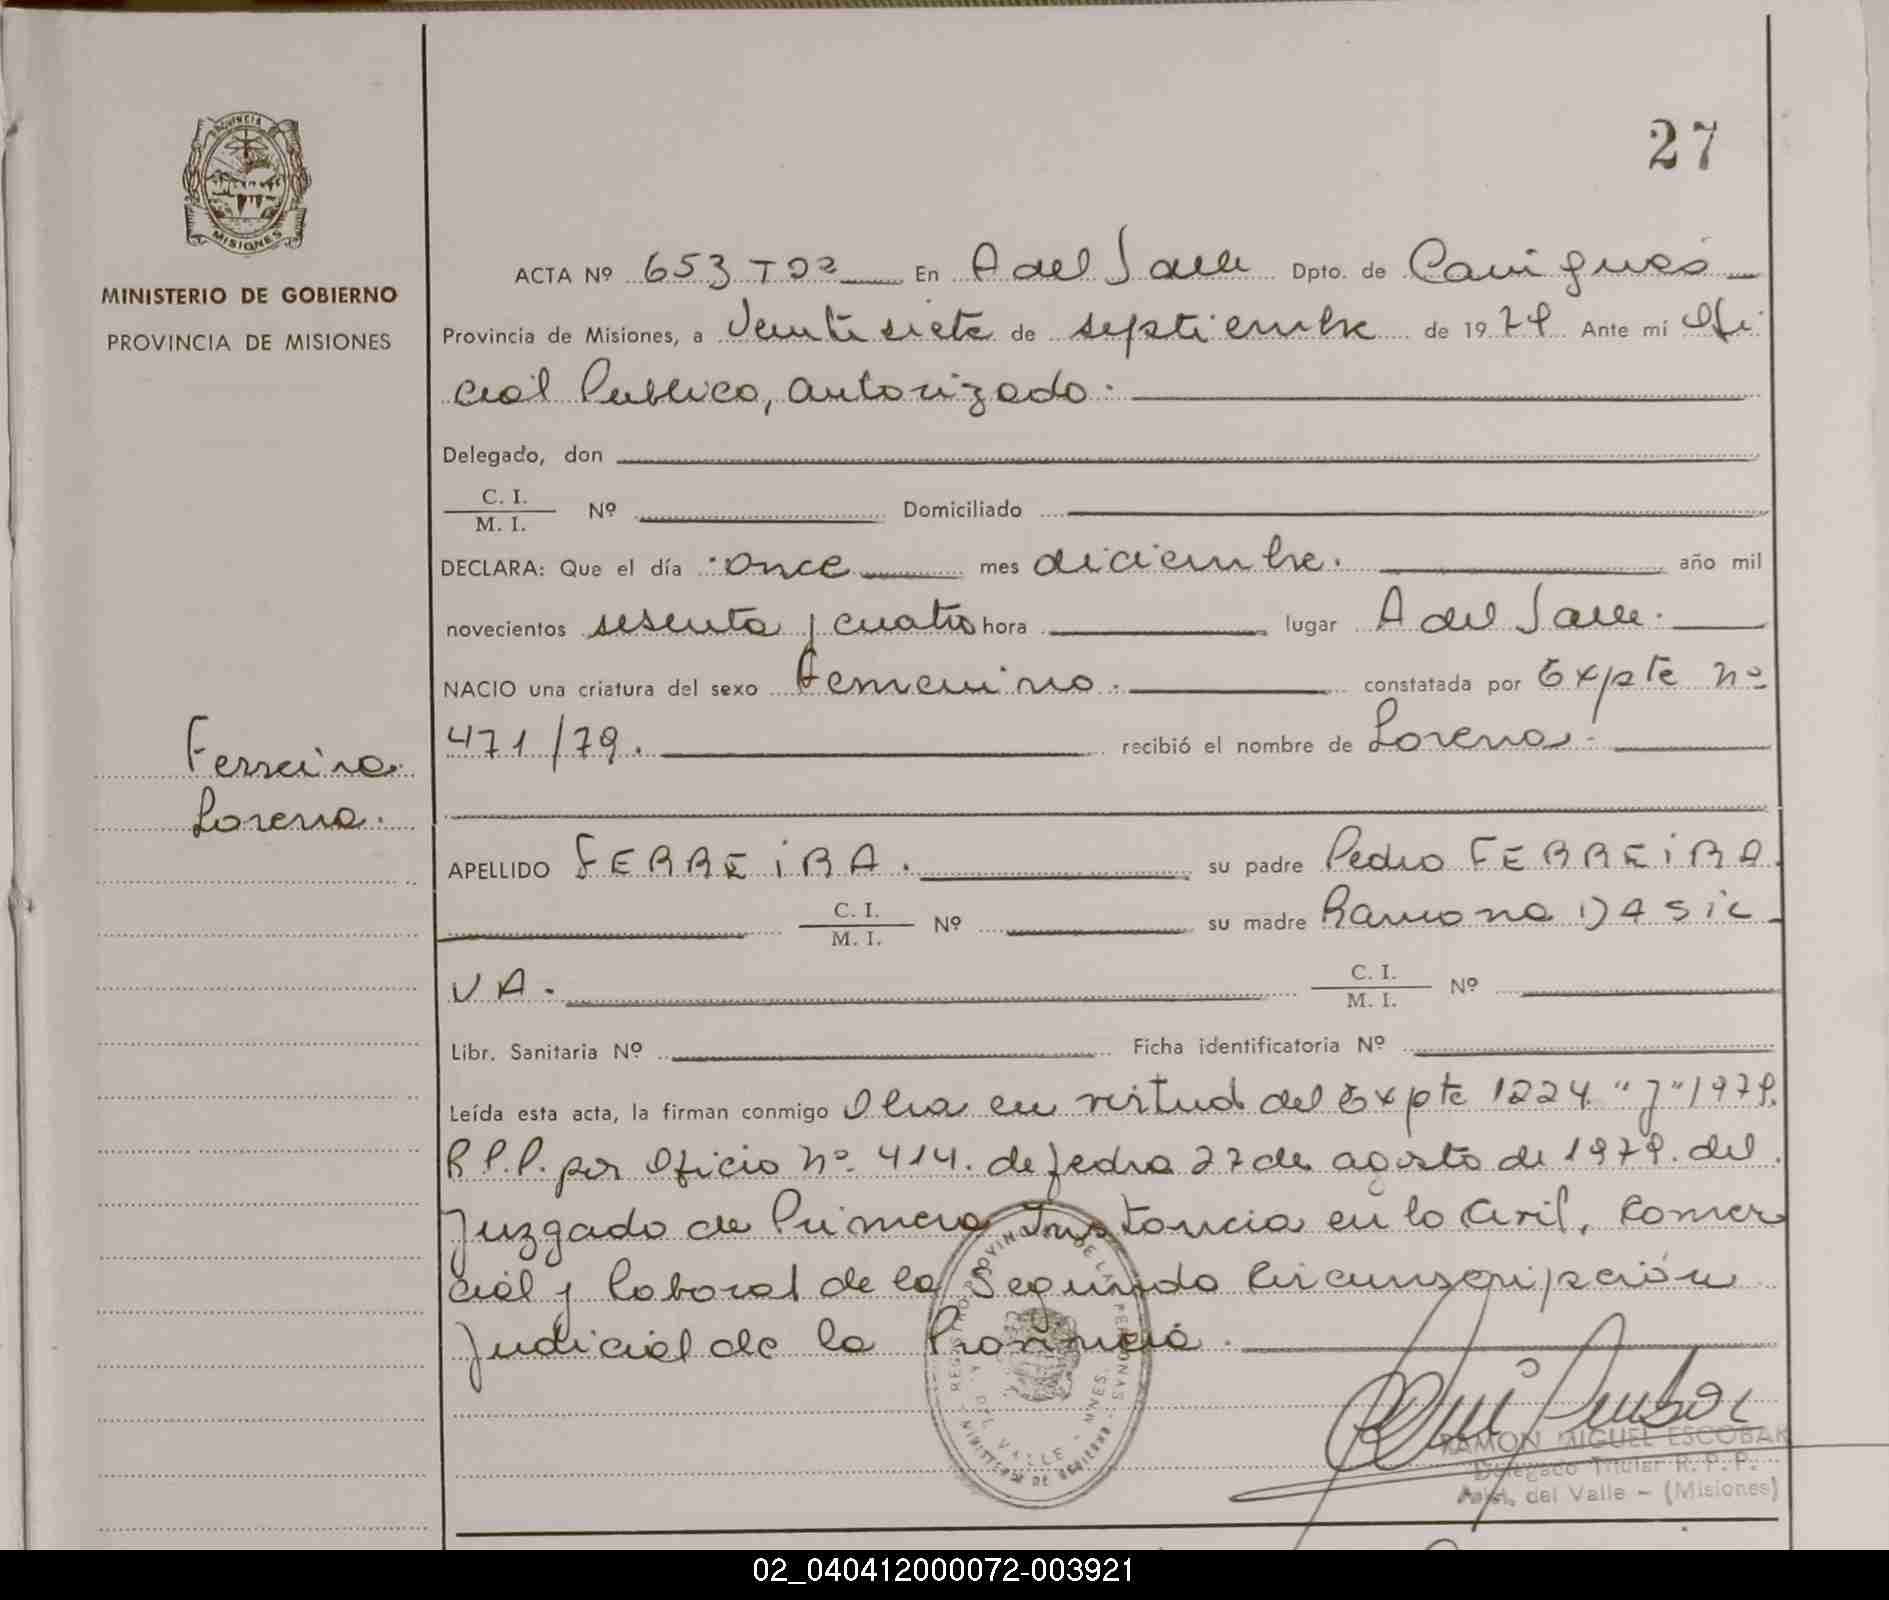 27
PROVINCIA DE
MISIONES
MINISTERIO DE GOBIERNO
PROVINCIA DE MISIONES
ACTA Nº 653 T 02 En A del Valle Dpto. de Cainguás
Provincia de Misiones, a Veintisiete de septiembre de 1979 Ante mí Ofi
cial Publico, autorizado.
Delegado, don
C. I.
M. I. Nº Domiciliado
DECLARA: Que el día once mes diciembre. año mil
novecientos sesenta y cuatro hora lugar A del Valle.
NACIO una criatura del sexo Femenino. constatada por Expte nº
471/79. recibió el nombre de Lorena.
Ferreira
Lorena.
APELLIDO FERREIRA. su padre Pedro FERREIRA.
C. I.
M. I. Nº su madre Ramona DA SIL
VA. C. I.
M. I. Nº
Libr. Sanitaria Nº Ficha identificatoria Nº
Leída esta acta, la firman conmigo en virtud del Expte 1224 "J" 1979.
R P.P. por Oficio nº. 414. de fecha 27 de agosto de 1979. del
Juzgado de Primera Instancia en lo Civil, Comer
cial y Laboral de la Segunda Circunscripción
Judicial de la Provincia.
REGISTRO PROVINCIAL DE LAS PERSONAS
A. DEL VALLE - MNES.
MINISTERIO DE GOBIERNO
RAMON MIGUEL ESCOBAR
Delegado Titular R. P. P.
del Valle - (Misiones)
02_040412000072-003921